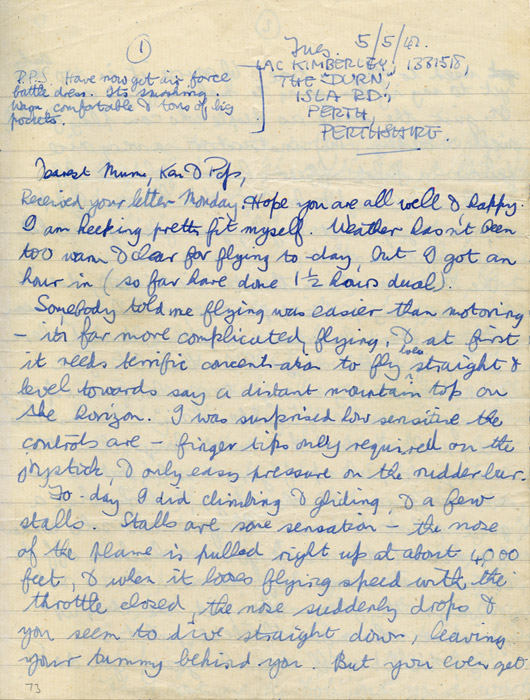 ①
Tues. 5/5/42.
LAC KIMBERLEY, 1331518,
THE "DURN",
ISLA RD.,
PERTH,
PERTHSHIRE.
P.P.S. Have now got air force
battle dress. Its smashing.
Warm, comfortable & tons of big
pockets.
Dearest Mum, Ken & Pops,
Received your letter Monday. Hope you are all well & happy.
I am keeping pretty fit myself. Weather hasn't been
too warm & clear for flying to-day, but I got an
hour in (so far have done 1½ hours dual).
Somebody told me flying was easier than motoring
– its far more complicated, flying, & at first
it needs terrific concentration to fly straight &
level towards say a distant mountain top on
the horizon. I was surprised how sensitive the
controls are – finger tips only required on the
joystick, & only easy pressure on the rudder bar.
To-day I did climbing & gliding, & a few
stalls. Stalls are some sensation – the nose
of the plane is pulled right up at about 4,000
feet, & when it loses flying speed with the
throttle closed, the nose suddenly drops &
you seem to dive straight down, leaving
your tummy behind you. But you even get
73